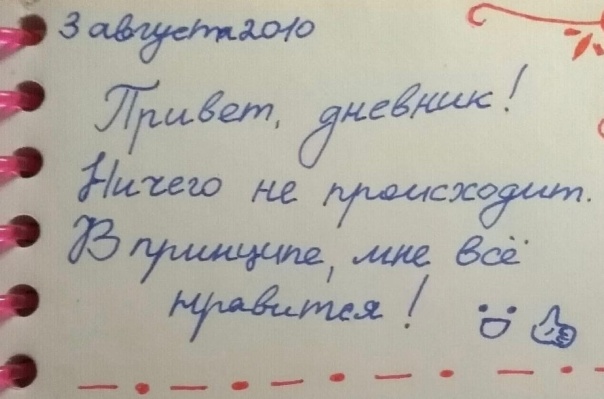 3 августа 2010
Привет, дневник!
Ничего не происходит.
В принципе, мне всё
нравится!